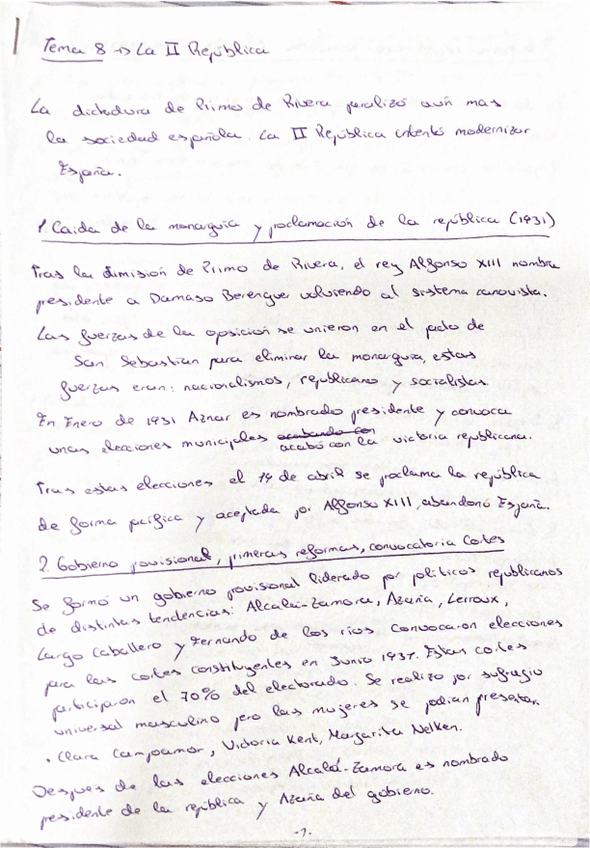 Tema 8 → La II República
La dictadura de Primo de Rivera paralizó aún mas
la sociedad española. La II República intentó modernizar
España.
1. Caida de la monarquía y proclamación de la república (1931)
Tras la dimisión de Primo de Rivera, el rey Alfonso XIII nombra
presidente a Damaso Berenguer volviendo al sistema canovista.
Las fuerzas de la oposición se unieron en el pacto de
San Sebastian para eliminar la monarquia, estas
fuerzas eran: nacionalismos, republicano y socialistas.
En Enero de 1931 Aznar es nombrado presidente y convoca
unas elecciones municipales acabando con
acabó con la victoria republicana.
Tras estas elecciones el 14 de abril se proclama la república
de forma pacífica y aceptada por Alfonso XIII, abandonó España.
2. Gobierno provisional, primeras reformas, convocatoria Cortes
Se formó un gobierno provisional liderado por políticos republicanos
de distintas tendencias: Alcalá-Zamora, Azaña, Lerroux,
Largo Caballero y Fernando de los ríos. Convocaron elecciones
para las cortes constituyentes en Junio 1931. Estas cortes
participaron el 70% del electorado. Se realizo por sufragio
universal masculino pero las mujeres se podian presentar.
• Clara Campoamor, Victoria Kent, Margarita Nelken.
Despues de las elecciones Alcalá-Zamora es nombrado
presidente de la república y Azaña del gobierno.
-1-